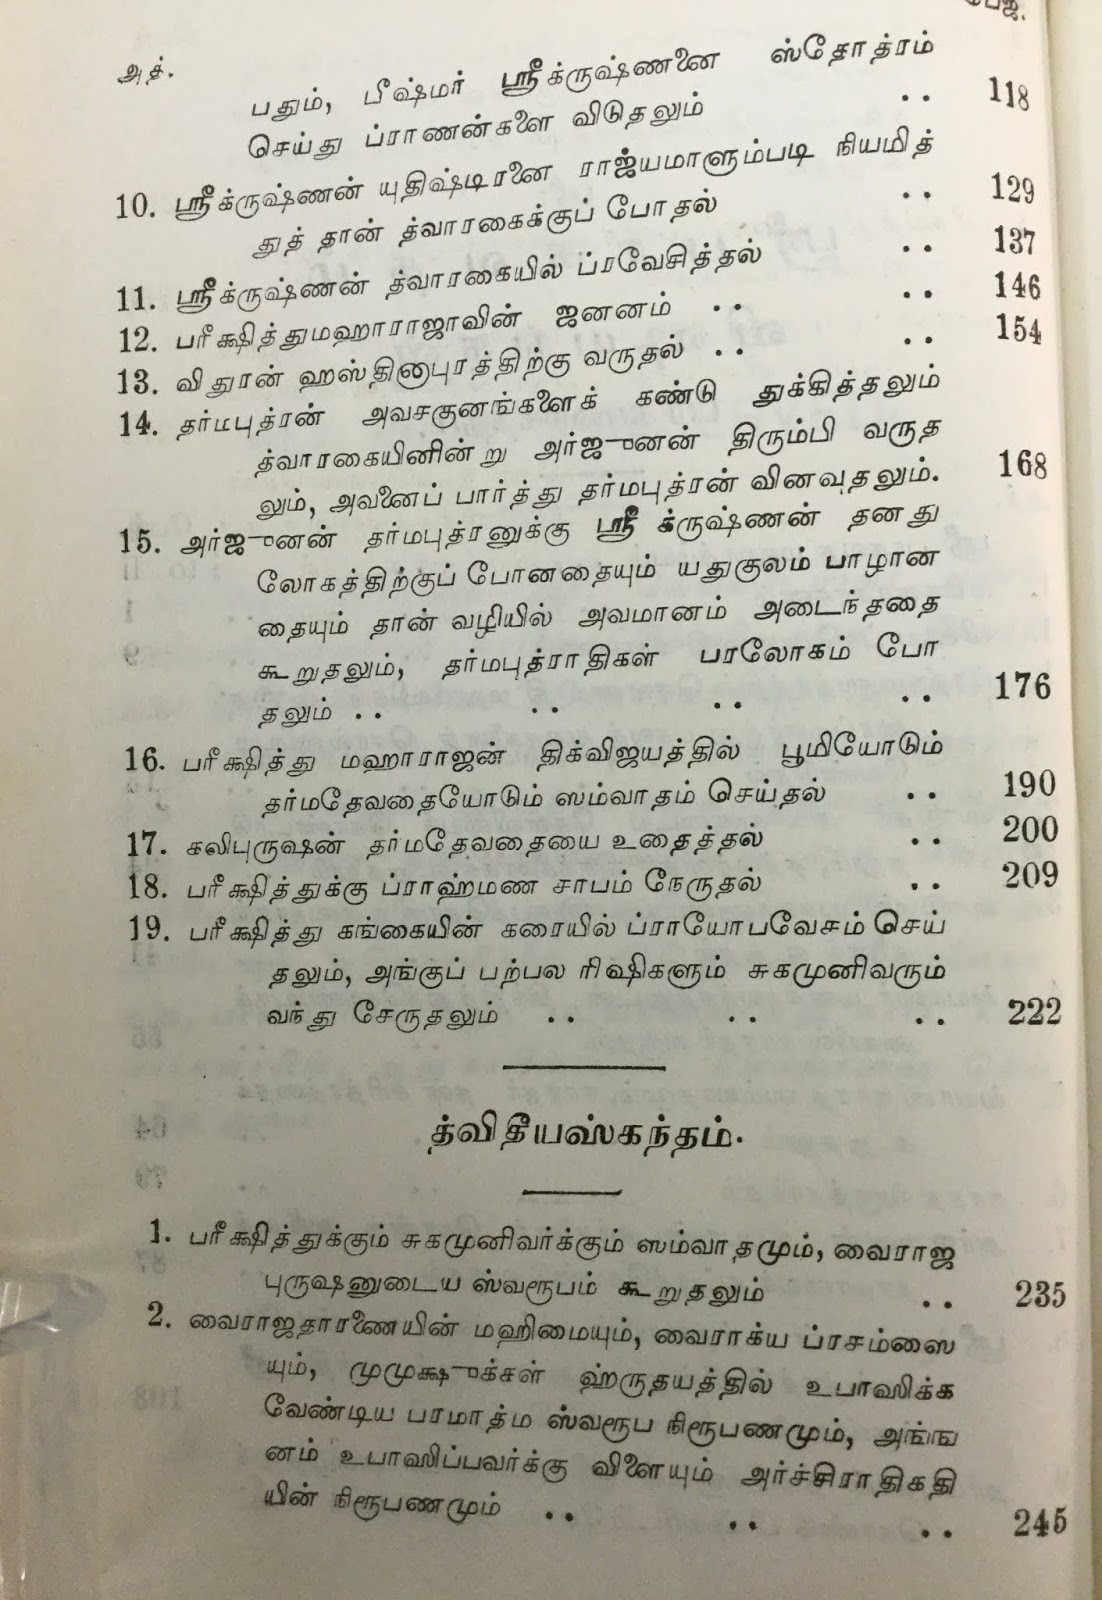 பேஜ்.
அத்.
பதும், பீஷ்மர் ஸ்ரீக்ருஷ்ணனை ஸ்தோத்ரம்
செய்து ப்ராணன்களை விடுதலும் .. 118
10. ஸ்ரீக்ருஷ்ணன் யுதிஷ்டிரனை ராஜ்யமாளும்படி நியமித்
துத் தான் த்வாரகைக்குப் போதல் .. 129
11. ஸ்ரீக்ருஷ்ணன் த்வாரகையில் ப்ரவேசித்தல் .. 137
12. பரீக்ஷித்துமஹாராஜாவின் ஜனனம் .. .. 146
13. விதுரன் ஹஸ்தினாபுரத்திற்கு வருதல் .. .. 154
14. தர்மபுத்ரன் அவசகுனங்களைக் கண்டு துக்கித்தலும்
த்வாரகையினின்று அர்ஜுனன் திரும்பி வருத
லும், அவனைப் பார்த்து தர்மபுத்ரன் வினவுதலும். 168
15. அர்ஜுனன் தர்மபுத்ரனுக்கு ஸ்ரீ க்ருஷ்ணன் தனது
லோகத்திற்குப் போனதையும் யதுகுலம் பாழான
தையும் தான் வழியில் அவமானம் அடைந்ததை
கூறுதலும், தர்மபுத்ராதிகள் பரலோகம் போ
தலும் .. .. .. .. 176
16. பரீக்ஷித்து மஹாராஜன் திக்விஜயத்தில் பூமியோடும்
தர்மதேவதையோடும் ஸம்வாதம் செய்தல் .. 190
17. கலிபுருஷன் தர்மதேவதையை உதைத்தல் .. 200
18. பரீக்ஷித்துக்கு ப்ராஹ்மண சாபம் நேருதல் .. 209
19. பரீக்ஷித்து கங்கையின் கரையில் ப்ராயோபவேசம் செய்
தலும், அங்குப் பற்பல ரிஷிகளும் சுகமுனிவரும்
வந்து சேருதலும் .. .. .. 222
த்விதீயஸ்கந்தம்.
1. பரீக்ஷித்துக்கும் சுகமுனிவர்க்கும் ஸம்வாதமும், வைராஜ
புருஷனுடைய ஸ்வரூபம் கூறுதலும் .. 235
2. வைராஜதாரணையின் மஹிமையும், வைராக்ய ப்ரசம்ஸை
யும், முமுக்ஷுக்கள் ஹ்ருதயத்தில் உபாஸிக்க
வேண்டிய பரமாத்ம ஸ்வரூப நிரூபணமும், அங்ங
னம் உபாஸிப்பவர்க்கு விளையும் அர்ச்சிராதிகதி
யின் நிரூபணமும் .. .. .. 245